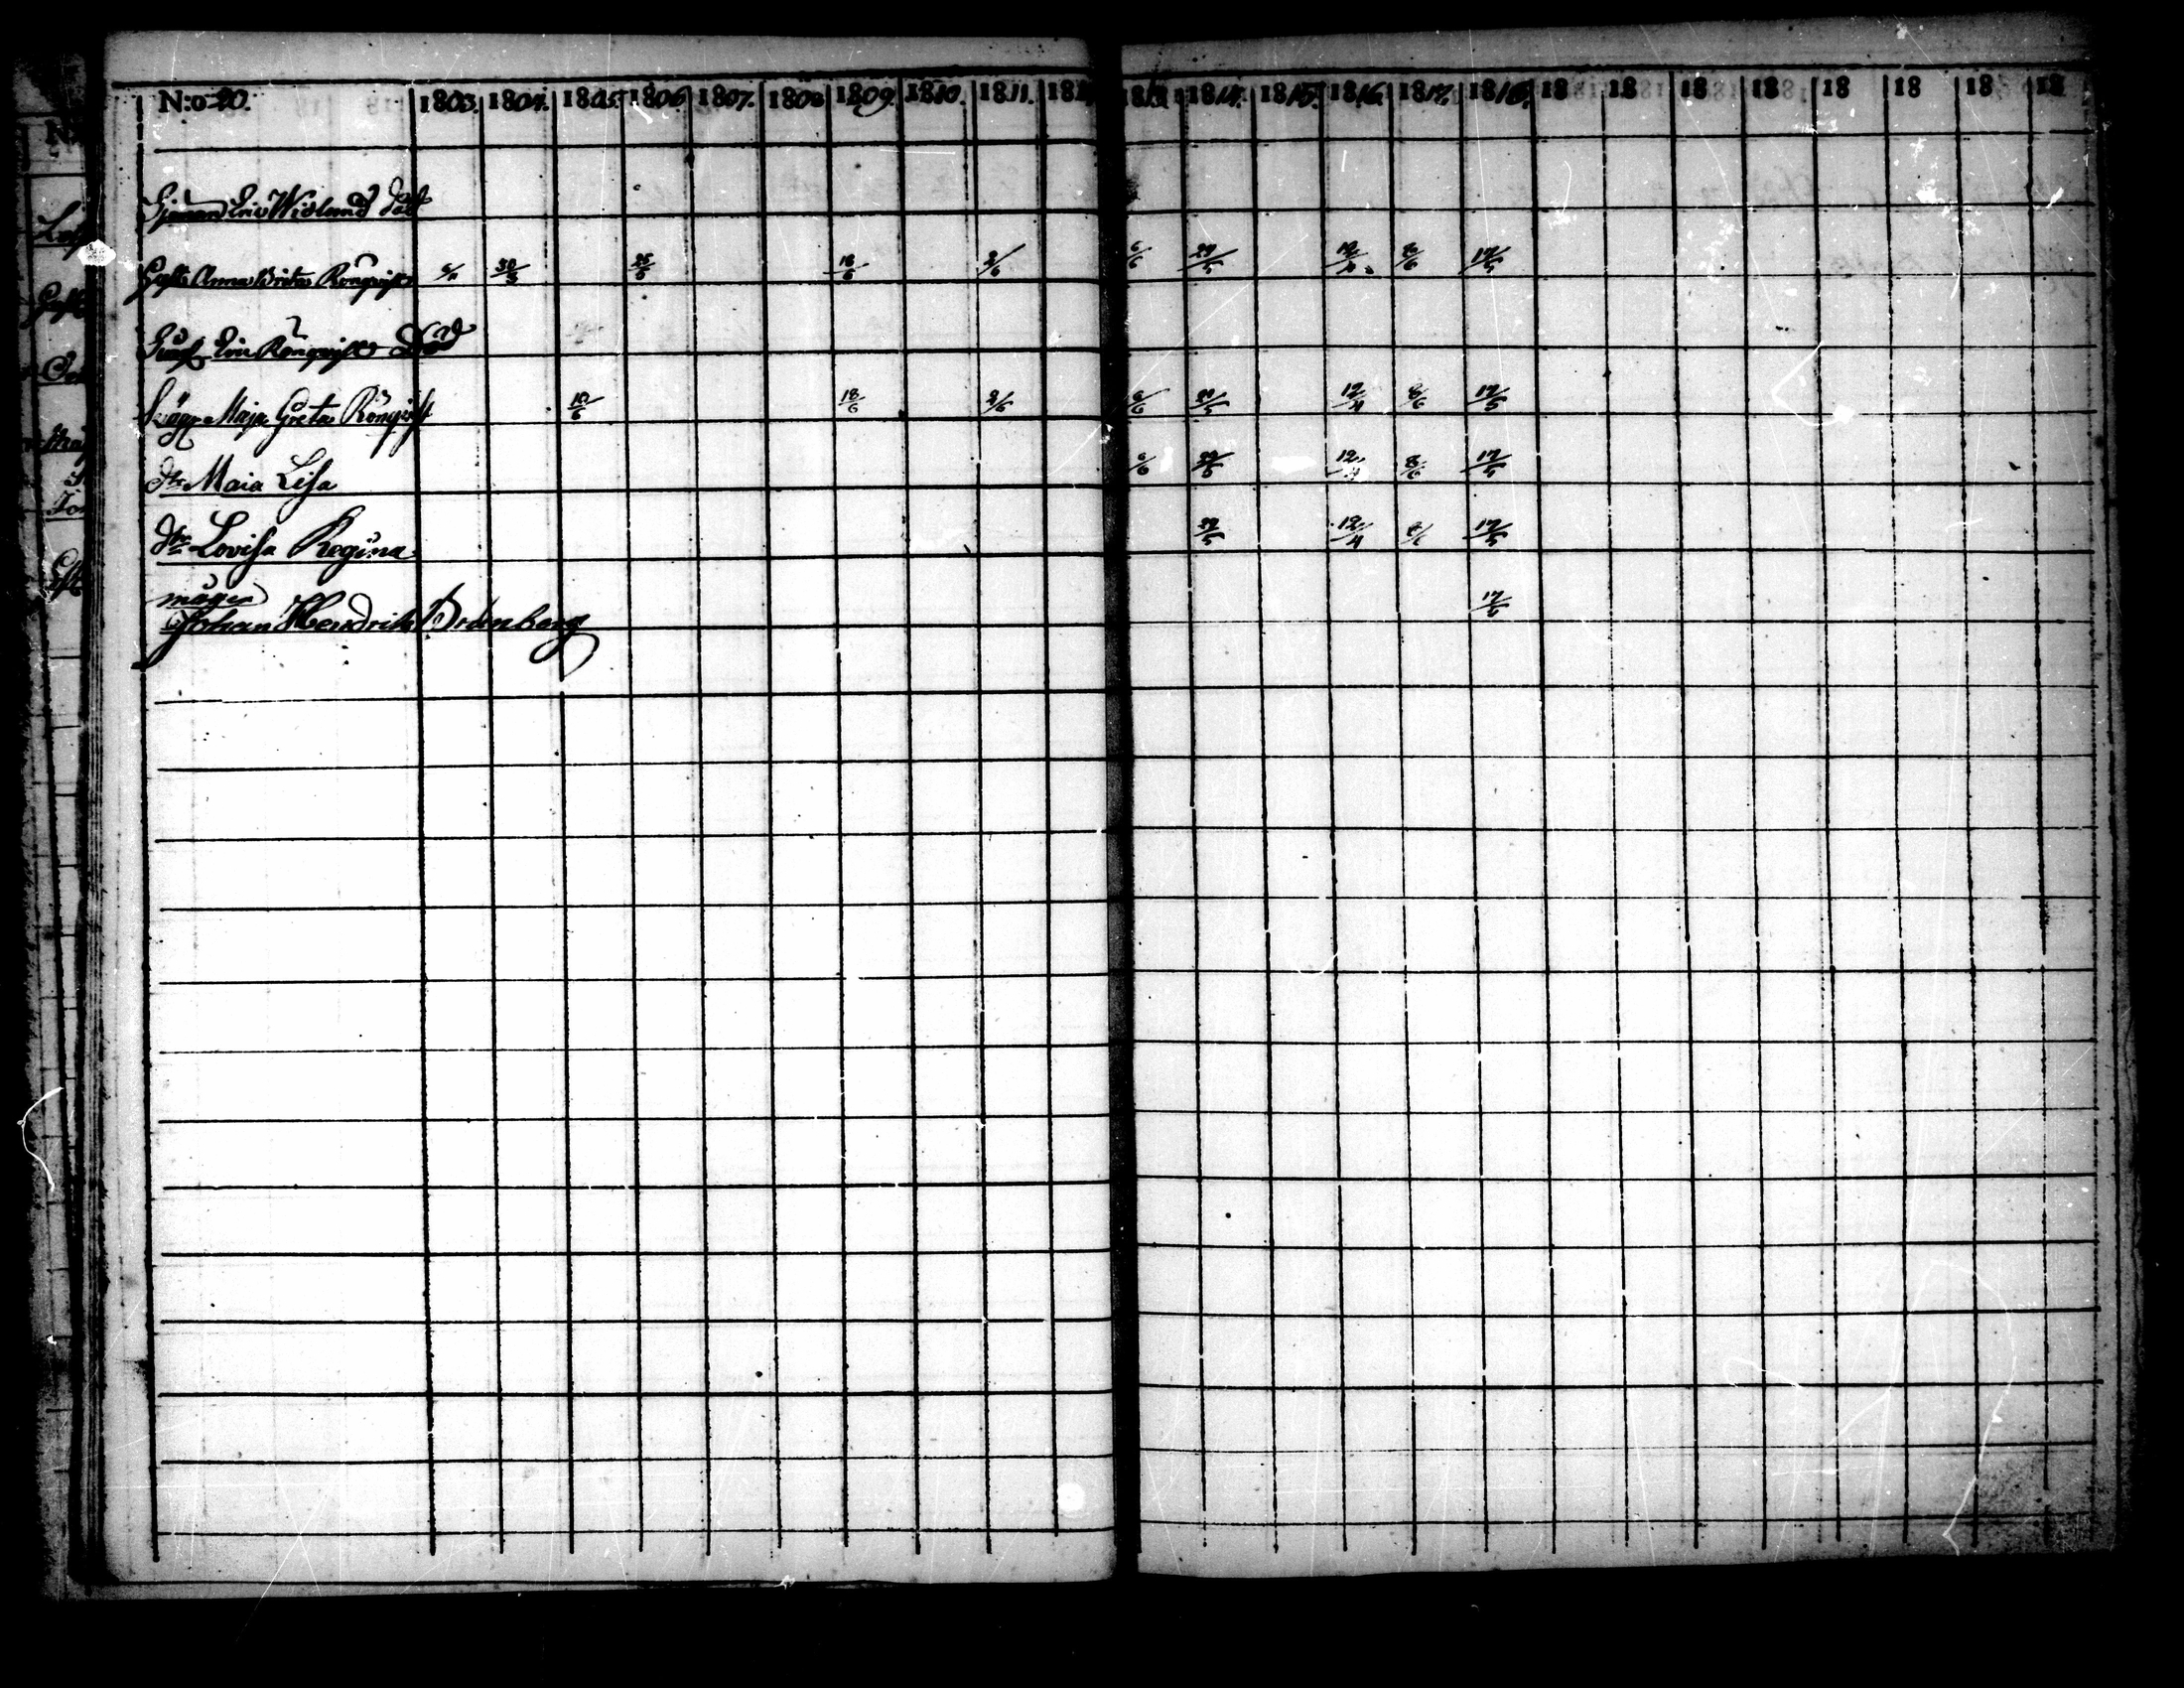 N:o 20. 1803. 1804. 1805. 1806 1807. 1808 1809. 1810. 1811. 181 1813 1814. 1815. 1816. 1817. 1818. 18 18 18 18 18 18 18 18
Eric Widlund död
Anna Brita Rönqvist 30/3 25/5 18/6 2/6 6/6 29/5 12/4 8/6 17/5
Eric Rönqvist Död
Maja Greta Rönqvist 10/6 18/6 2/6 6/6 29/5 12/4 8/6 17/5
dtr Maia Lisa 6/6 29/5 12/4 8/6 17/5
dtr Lovisa Regina 29/5 12/4 17/5
mågen
Johan Hendrik 17/5